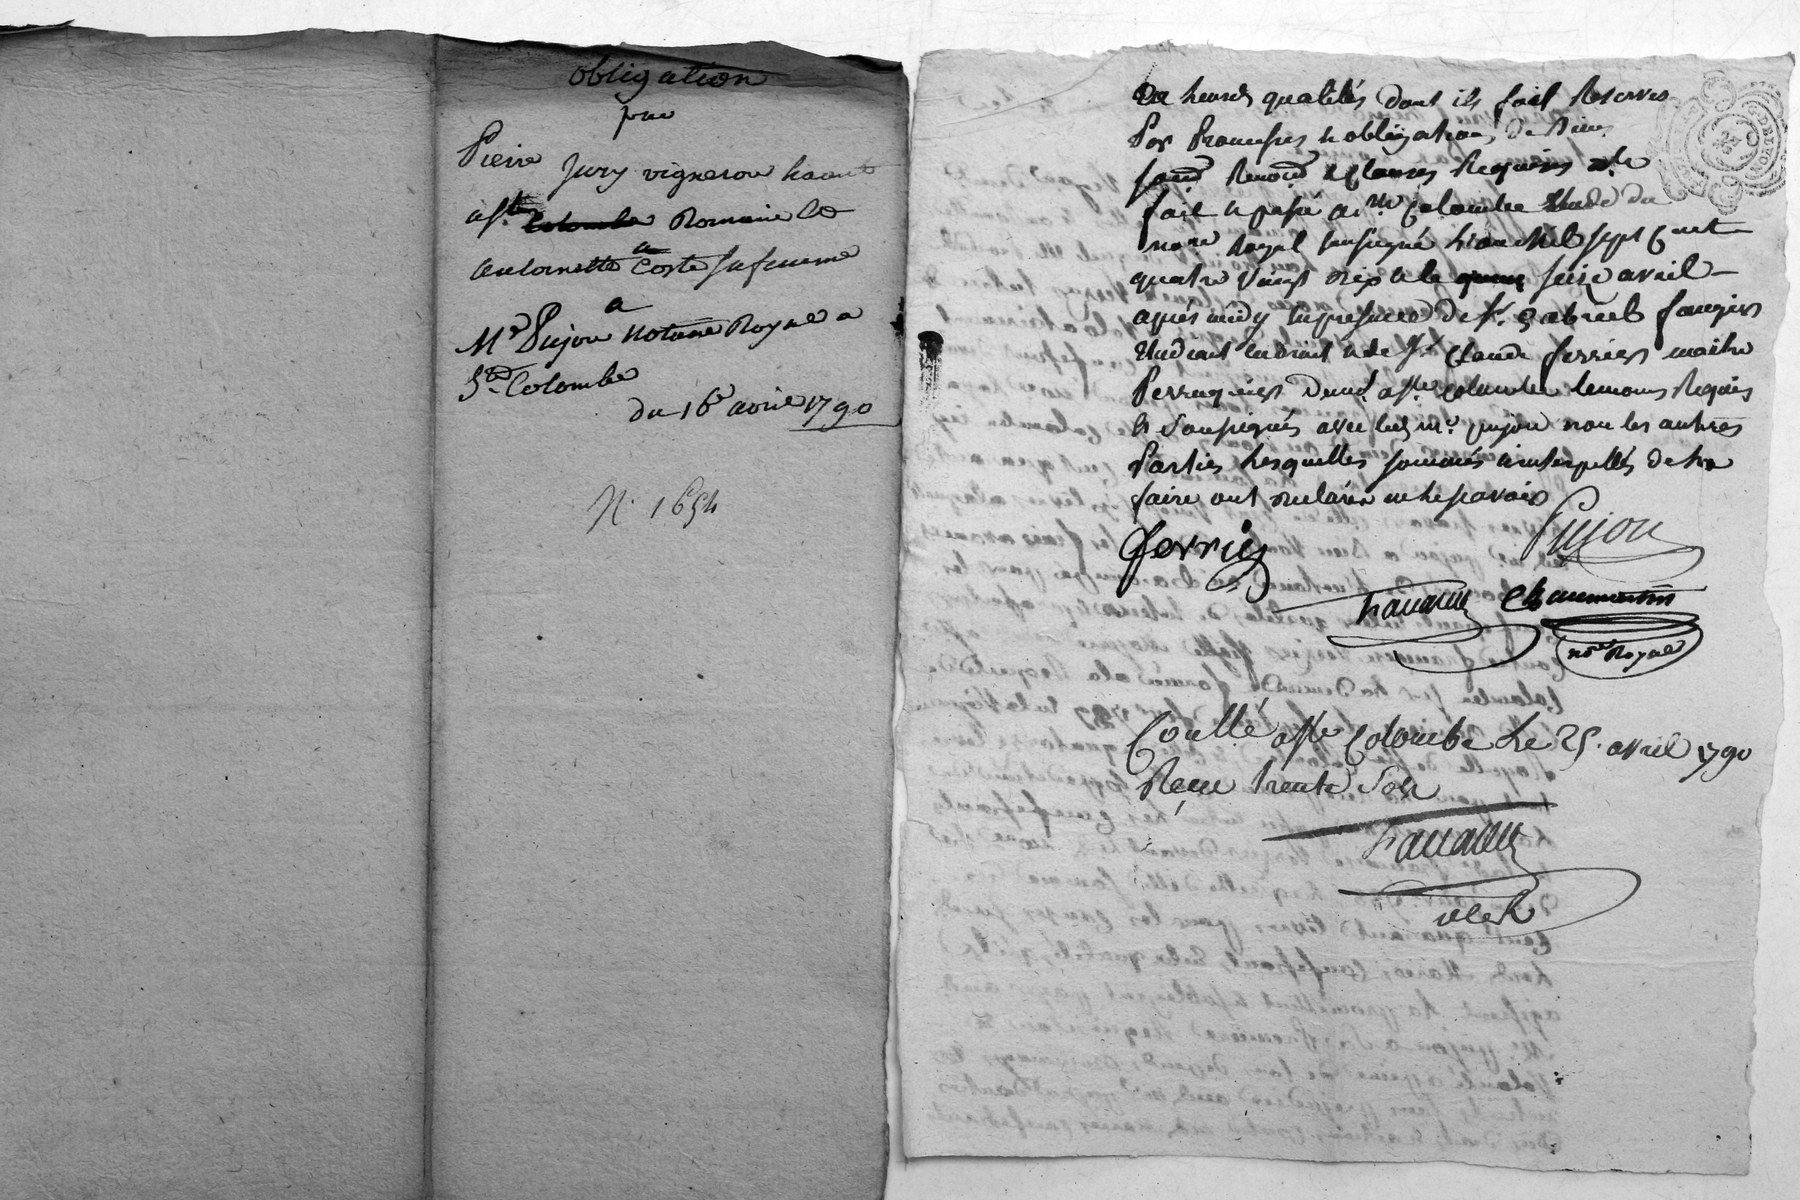 obligation
par
Pierre Jury vigneron haant
a Ste Colombe Romain le
a
antoinette Coste sa femme
a
Me Pujon notaire Royal a
Ste Colombe
du 16e avril 1790
N. 1654
qualités dont ils fait Reserves
Par Promesses & obligations de Biens
Renond & Clauses Requises
fait & passé a Ste Colombe Etude du
nore Royal soussigné L'an Mil sept Cent
quatre vingt dix & le seize avril
apres midy En presence de Sr. Gabriel
Etudiant en droit & de Sr. Claude ferriez maitre
Perruquier Demt. a Ste. Colombe temoins Requis
& soussignés avec led. Mr. pujon non les autres
Parties Lesquelles sommés & interpellés de Le
faire ont declarer ne le savoir
ferriez
Pujon
Chaumartin
nore Royal
a Ste Colombe Le 25. avril 1790
Reçu trente sols